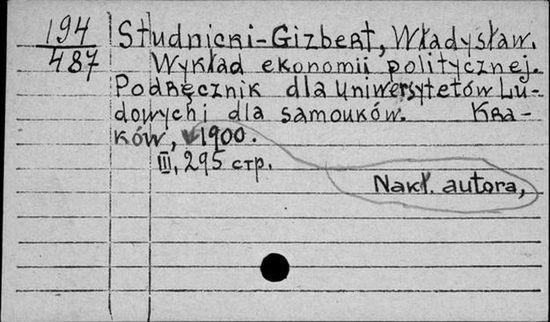 194
487
Studnicki-Gizbert, Władysław.
Wykład ekonomii politycznej.
Podręcznik dla Uniwersytetów Lu-
dowych i dla samouków. Kra-
ków, 1900.
III, 295 стр.
Nakł. autora,